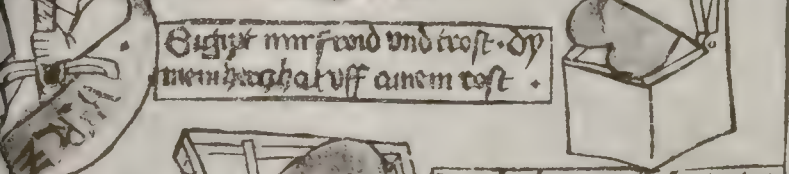 Si gipt mir froid vnd trost · dy
mein hercz hat vff ainem rost ·